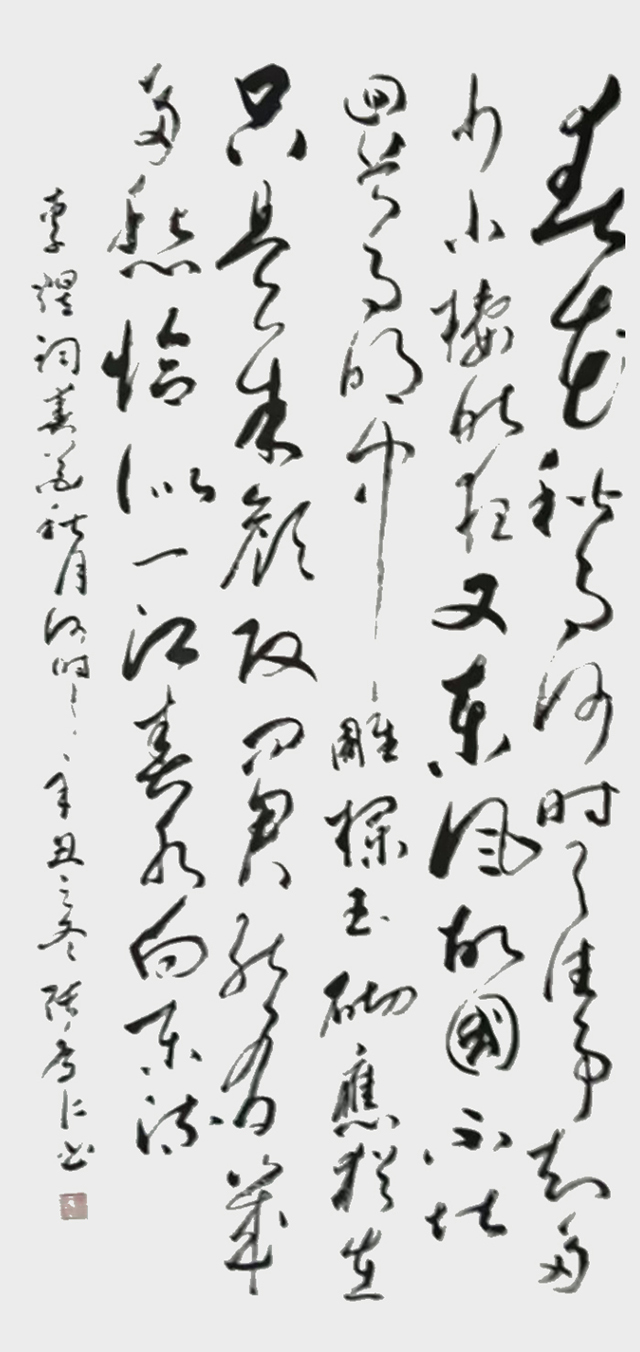 春花秋月何时了往事知多
少小楼昨夜又东风故國不堪
回首月明中雕栏玉砌應猶在
只是朱颜改问君能有幾
多愁恰似一江春水向东流
李煜词春花秋月何时了 辛丑之冬 仁书